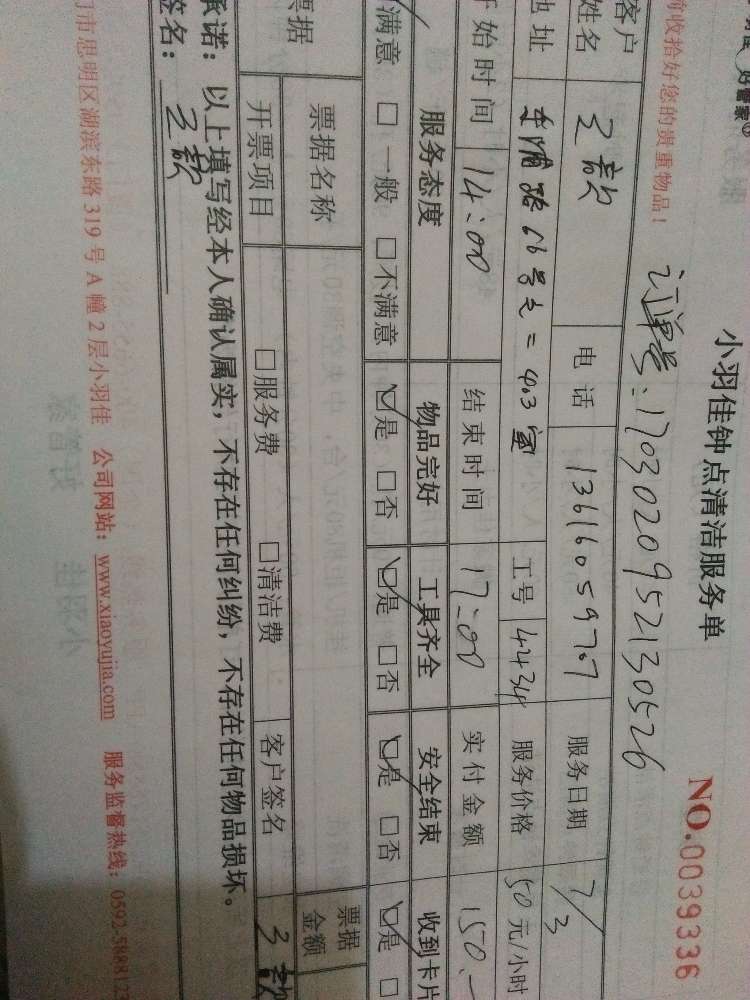 好管家
小羽佳钟点清洁服务单
NO.0039336
前收拾好您的贵重物品!
订单号:1703020952130526
客户姓名 电话 服务日期 7/3
地址 东浦路 工号 4434 服务价格 50元/小时
开始时间 14:00 结束时间 17:00 实付金额 150.-
服务态度 物品完好 工具齐全 安全结束 收到卡片
满意 □一般 □不满意 ☑是 □否 ☑是 □否 ☑是 □否 ☑是 □
票据 票据名称 票据金额
开票项目 □服务费 □清洁费 客户签名
承诺:以上填写经本人确认属实,不存在任何纠纷,不存在任何物品损坏。
签名:
门市思明区湖滨东路319号A幢2层小羽佳 公司网站:www.xiaoyujia.com 服务监督热线:0592-5888123